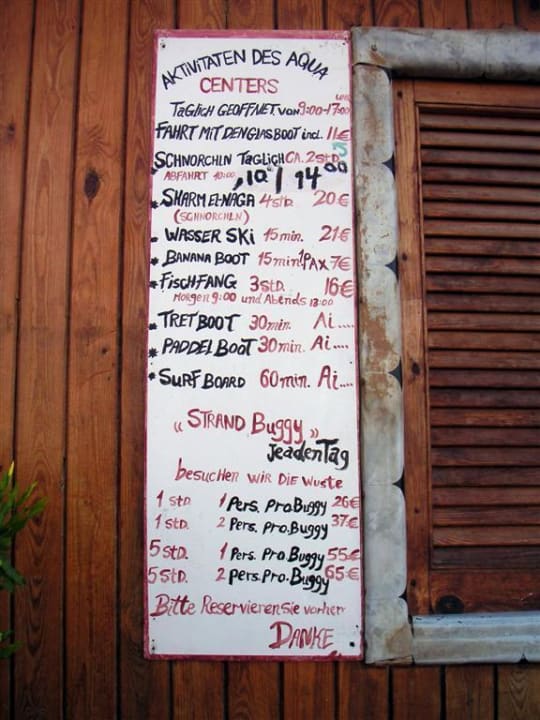 AKTIVITATEN DES AQUA
CENTERS
TäGLiCH GEÖFFNET.VON 9:00-17:00
FAHRT MIT DENGlASBOOT incl. 11€
SCHNORCHLN TäGLiCH CA. 2 STD.
ABFAHRT 10:00, 10/ 14°°
* SHARM EL-NAGA 4 STD. 20€
(SCHNORCHLN)
- WASSER SKi 15 min. 21€
* BANANA BOOT 15 min. 1PAX 7€
* FiscHFANG 3 STD. 16€
MORGEN 9:00 und Abends 13:00
* TRETBOOT 30 min. Ai....
* PADDEL BOOT 30 min. Ai....
* SURF BOARD 60 min. Ai....
« STRAND Buggy »
JeadenTag
besuchen wiR DiE wuste
1 STD 1 Pers. PRo.Buggy 26€
1 STD. 2 Pers. PRo.Buggy 37€
5 STD. 1 Pers. PRo.Buggy 55€
5 STD. 2 Pers. PRo.Buggy 65€
Bitte ReservierenSie vorherr
DANKE